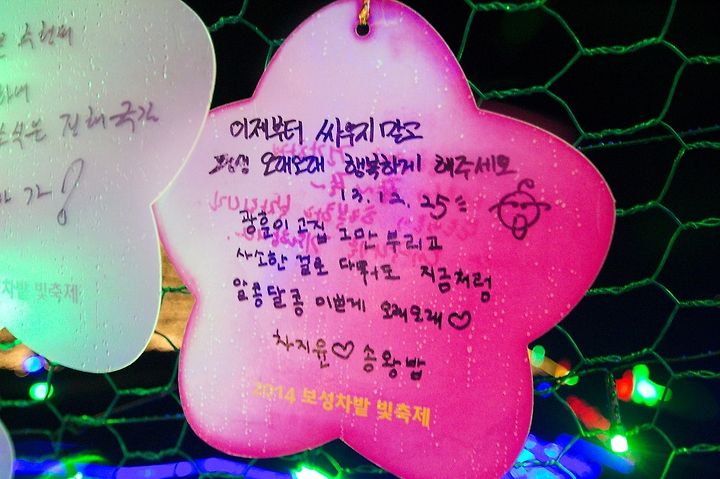 이제부터 싸우지 말고
오래오래 행복하게 해주세요
13.12.25
광훈이 고집 그만 부리고
사소한 걸로 다퉈도 지금처럼
알콩달콩 이쁘게 오래오래♡
차지윤♡송왕밤
2014 보성차밭 빛축제
차밭 빛축제